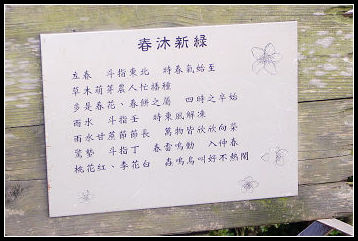 春沐新綠
立春 斗指東北 時春氣始至
草木萌芽農人忙播種
多是春花、春餅之屬 四時之卒始
雨水 斗指壬 時東風解凍
雨水甘蔗節節長 萬物皆欣欣向榮
驚蟄 斗指丁 春雷鳴動 入仲春
桃花紅、李花白 蟲鳴鳥叫好不熱鬧